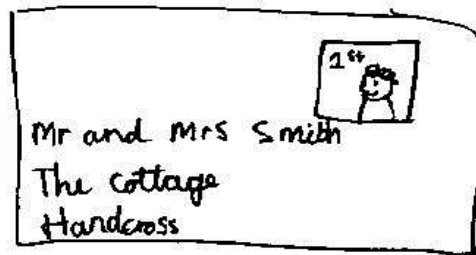 1st
Mr and Mrs Smith
The cottage
Handcross